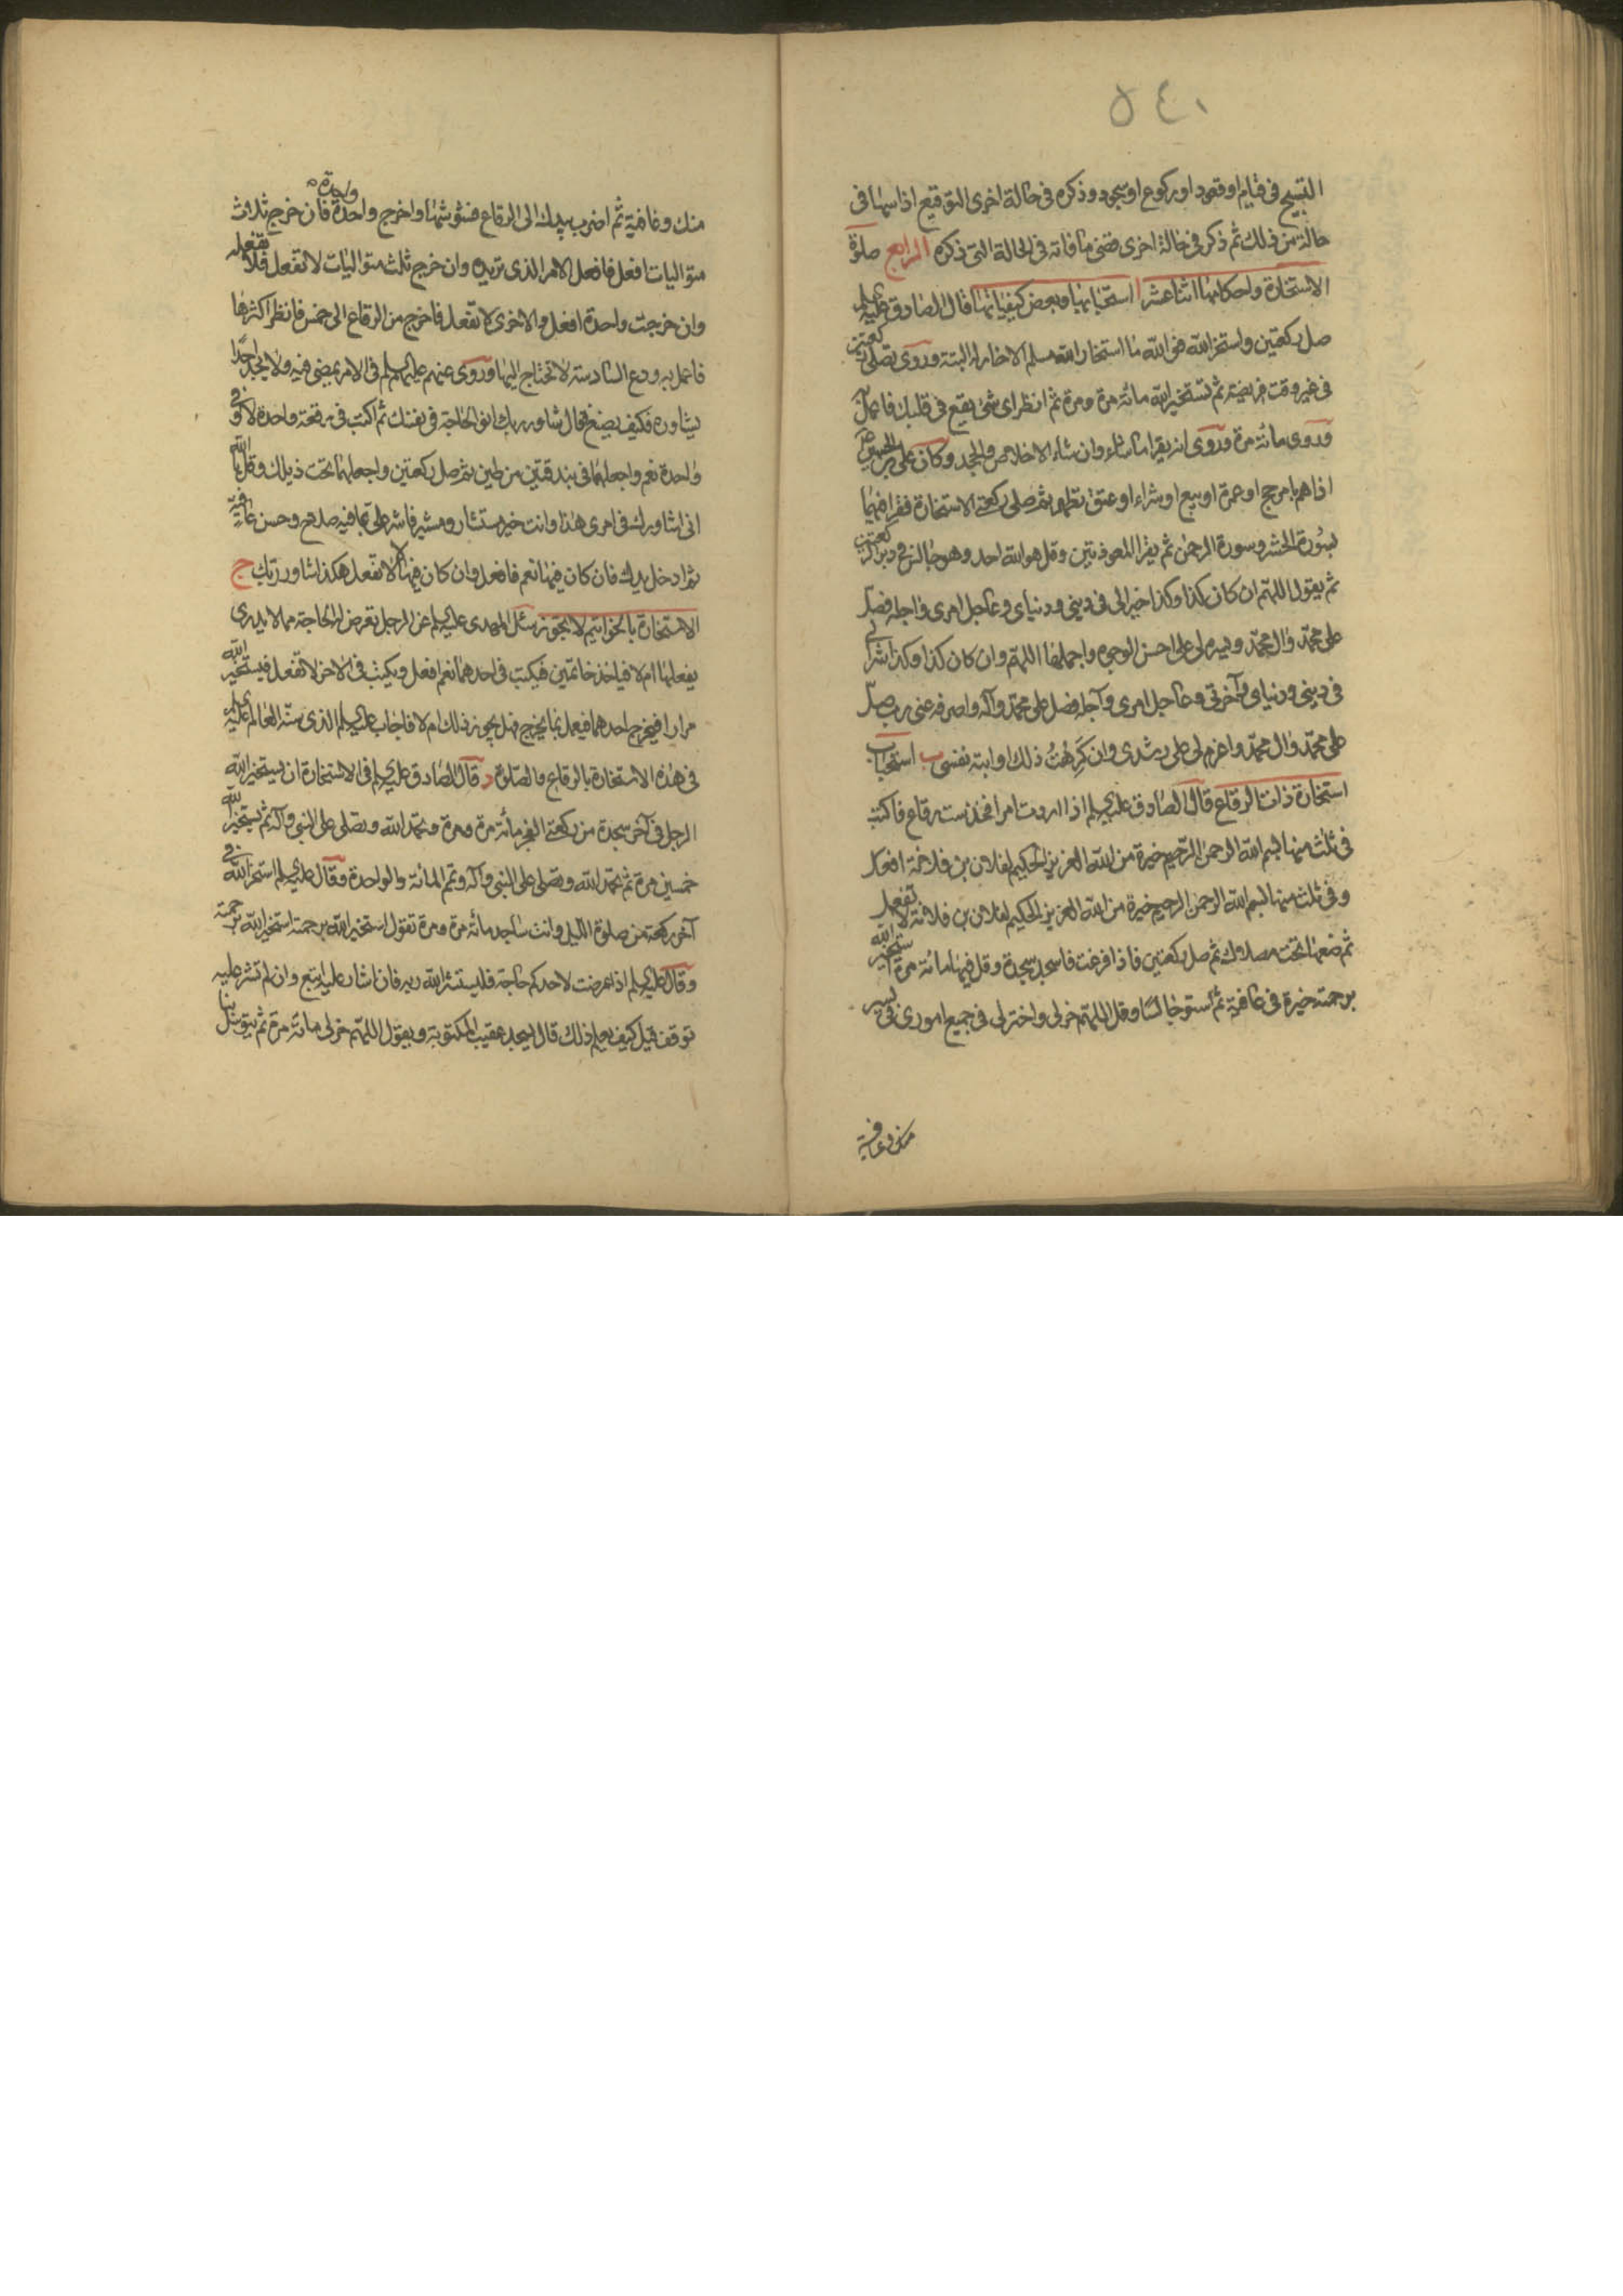 ٥٤٠
التسبيح فى قيام او قعود او ركوع او سجود وذكره فى حالة اخرى التوقيع اذا سها فى
حالة من ذلك ثم ذكر فى حالة اخرى قضى ما فاته فى الحالة التى ذكره الرابع صلوة
الاستخارة واحكامها اثنا عشر ا استحبابها وبعض كيفياتها قال الصادق عليه السلم
صل ركعتين واستخر الله فو الله ما استخار الله مسلم الا خار له البتة وروى تصلى ركعتين
فى غير وقت فريضة ثم تستخير الله مائة مرة ومرة ثم انظر اى شئ يقع فى قلبك فاعمل به
وروى مائة مرة وروى انه يقرا ما شاء وان شاء الاخلاص والجحد وكان على بن الحسين ع
اذا هم بامر حج او عمرة او بيع او شراء او عتق تطهر ثم صلى ركعتى الاستخارة فقرا فيهما
بسورة الحشر وسورة الرحمن ثم يقرا المعوذتين وقل هو الله احد وهو جالس فى دبر الركعتين
ثم يقول اللهم ان كان كذا وكذا خيرا لى فى دينى ودنياى وعاجل امرى واجله فصل
على محمد وال محمد ويسره لى على احسن الوجوه واجملها اللهم وان كان كذا وكذا شرا لى
فى دينى ودنياى وآخرتى وعاجل امرى وآجله فصل على محمد وآله واصرفه عنى رب صل
على محمد وال محمد واعزم لى على رشدى وان كرهت ذلك او ابته نفسى ب استحباب
استخارة ذات الرقاع قال الصادق عليه السلم اذا اردت امرا فخذ ست رقاع فاكتب
فى ثلث منها بسم الله الرحمن الرحيم خيرة من الله العزيز الحكيم لفلان بن فلانة افعل
وفى ثلث منها بسم الله الرحمن الرحيم خيرة من الله العزيز الحكيم لفلان بن فلانة لا تفعل
ثم ضعها تحت مصلاك ثم صل ركعتين فاذا فرغت فاسجد سجدة وقل فيها مائة مرة استخير الله
برحمته خيرة فى عافية ثم استو جالسا وقل اللهم خر لى واختر لى فى جميع امورى فى يسر
منك وعافية
منك وعافية ثم اضرب بيدك الى الرقاع فشوشها واخرج واحدة واحدة فان خرج ثلاث
متواليات افعل فافعل الامر الذى تريده وان خرج ثلث متواليات لا تفعل فلا تفعله
وان خرجت واحدة افعل والاخرى لا تفعل فاخرج من الرقاع الى خمس فانظر اكثرها
فاعمل به ودع السادسة لا تحتاج اليها وروى عنهم عليهم السلم فى الامر يمضى فيه ولا يجد احدا
يشاوره فكيف يصنع قال شاور ربك انو الحاجة فى نفسك ثم اكتب فى رقعة واحدة لا وفى
واحدة نعم واجعلهما فى بندقتين من طين ثم صل ركعتين واجعلهما تحت ذيلك وقل يا الله
انى اشاورك فى امرى هذا وانت خير مستشار ومشير فاشر على بما فيه صلاح وحسن عاقبة
ثم ادخل يدك فان كان فيها نعم فافعل وان كان فيها لا لا تفعل هكذا شاور ربك ج
الاستخارة بالخواتيم لا تجوز سئل المهدى عليه السلم عن الرجل تعرض له الحاجة مما لا يدرى
يفعلها ام لا فياخذ خاتمين فيكتب فى احدهما نعم افعل ويكتب فى الاخر لا تفعل فيستخير الله
مرارا فيخرج احدهما فيعمل بما يخرج فهل يجوز ذلك ام لا فاجاب عليه السلم الذى سنه العالم عليه السلم
فى هذه الاستخارة بالرقاع والصلوة د قال الصادق عليه السلم فى الاستخارة ان يستخير الله
الرجل فى آخر سجدة من ركعتى الفجر مائة مرة ومرة ويحمد الله ويصلى على النبى وآله ثم يستخير الله
خمسين مرة ثم يحمد الله ويصلى على النبى وآله وتم المائة والواحدة وقال عليه السلم استخر الله فى
آخر ركعة من صلوة الليل وانت ساجد مائة مرة ومرة تقول استخير الله برحمته استخير الله برحمته
وقال عليه السلم اذا عرضت لاحدكم حاجة فليستشر الله ربه فان اشار عليه اتبع وان لم تشر عليه
توقف قيل كيف يعلم ذلك قال يسجد عقيب المكتوبة ويقول اللهم خر لى مائة مرة ثم يتوسل بنا